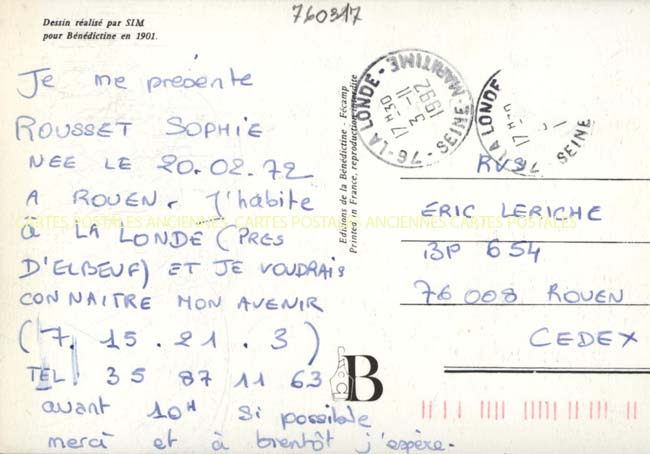 760317
Dessin réalisé par SIM
pour Bénédictine en 1901.
Je me présente
ROUSSET SOPHIE
NEE LE 20.02.72
A ROUEN. J'habite
à LA LONDE (PRES
D'ELBEUF) ET JE VOUDRAIS
CONNAITRE MON AVENIR
(7. 15. 21. 3)
TEL. 35 87 11 63
avant 10H si possible
merci et à bientôt j'espère.
Editions de la Bénédictine - Fécamp
Printed in France, reproduction interdite
76-LA LONDE - SEINE-MARITIME
17H30
3-11
1992
LA LONDE
76
17H30
SEINE
RVS
ERIC LERICHE
BP 654
76008 ROUEN
CEDEX
B
CARTES POSTALES ANCIENNES CARTES POSTALES ANCIENNES CARTES POSTALES